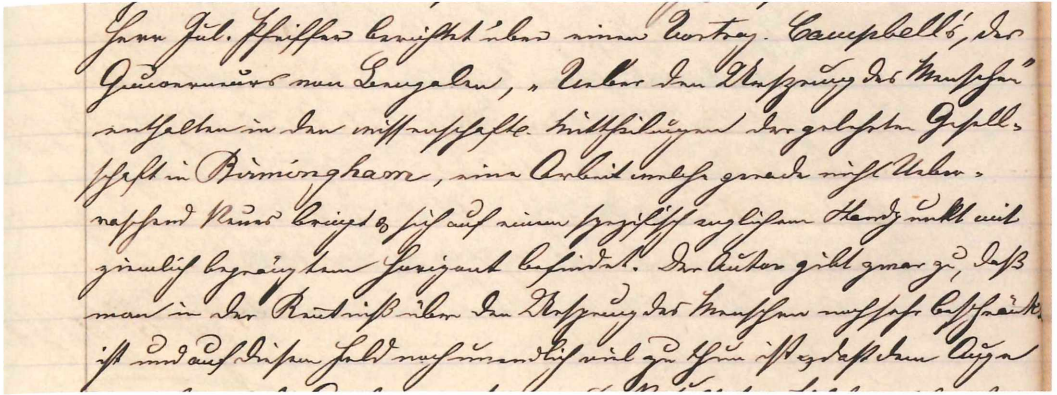 Herr Jul. Pfeiffer berichtet über einen Vortrag. Campbell's, des
Gouverneurs von Bengalen, „Ueber den Ursprung des Menschen“
enthalten in den wissenschaftl. Mittheilungen der gelehrten Gesell-
schaft in Birmingham, eine Arbeit welche gerade nicht Ueber-
raschend Neues bringt & sich auf einem spezifisch englischem Standpunkt mit
ziemlich begränztem Horizont befindet. Der Autor gibt zwar zu, daß
man in der Kenntniß über den Ursprung des Menschen noch sehr beschränkt
ist und auf diesem Feld noch unendlich viel zu thun ist & daß dem Auge